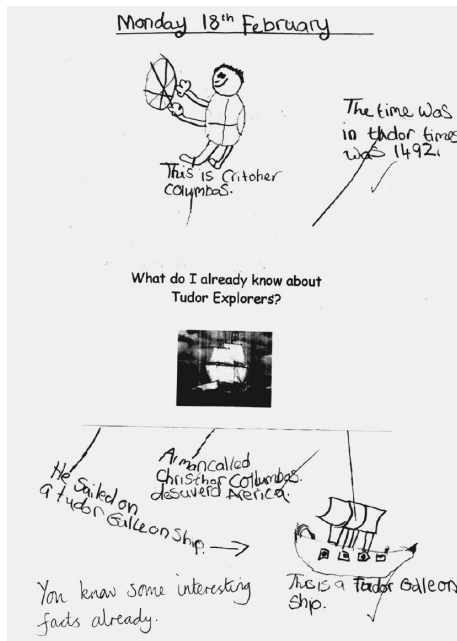 Monday 18th February
The time was
in tudor times
was 1492.
This is Critoher
columbas.
What do I already know about
Tudor Explorers?
He sailed on
a tudor Galleon ship.
A man called
Christher Collumbas.
desuverd Arerica.
This is a Tudor Galeon
ship.
You know some interesting
facts already.